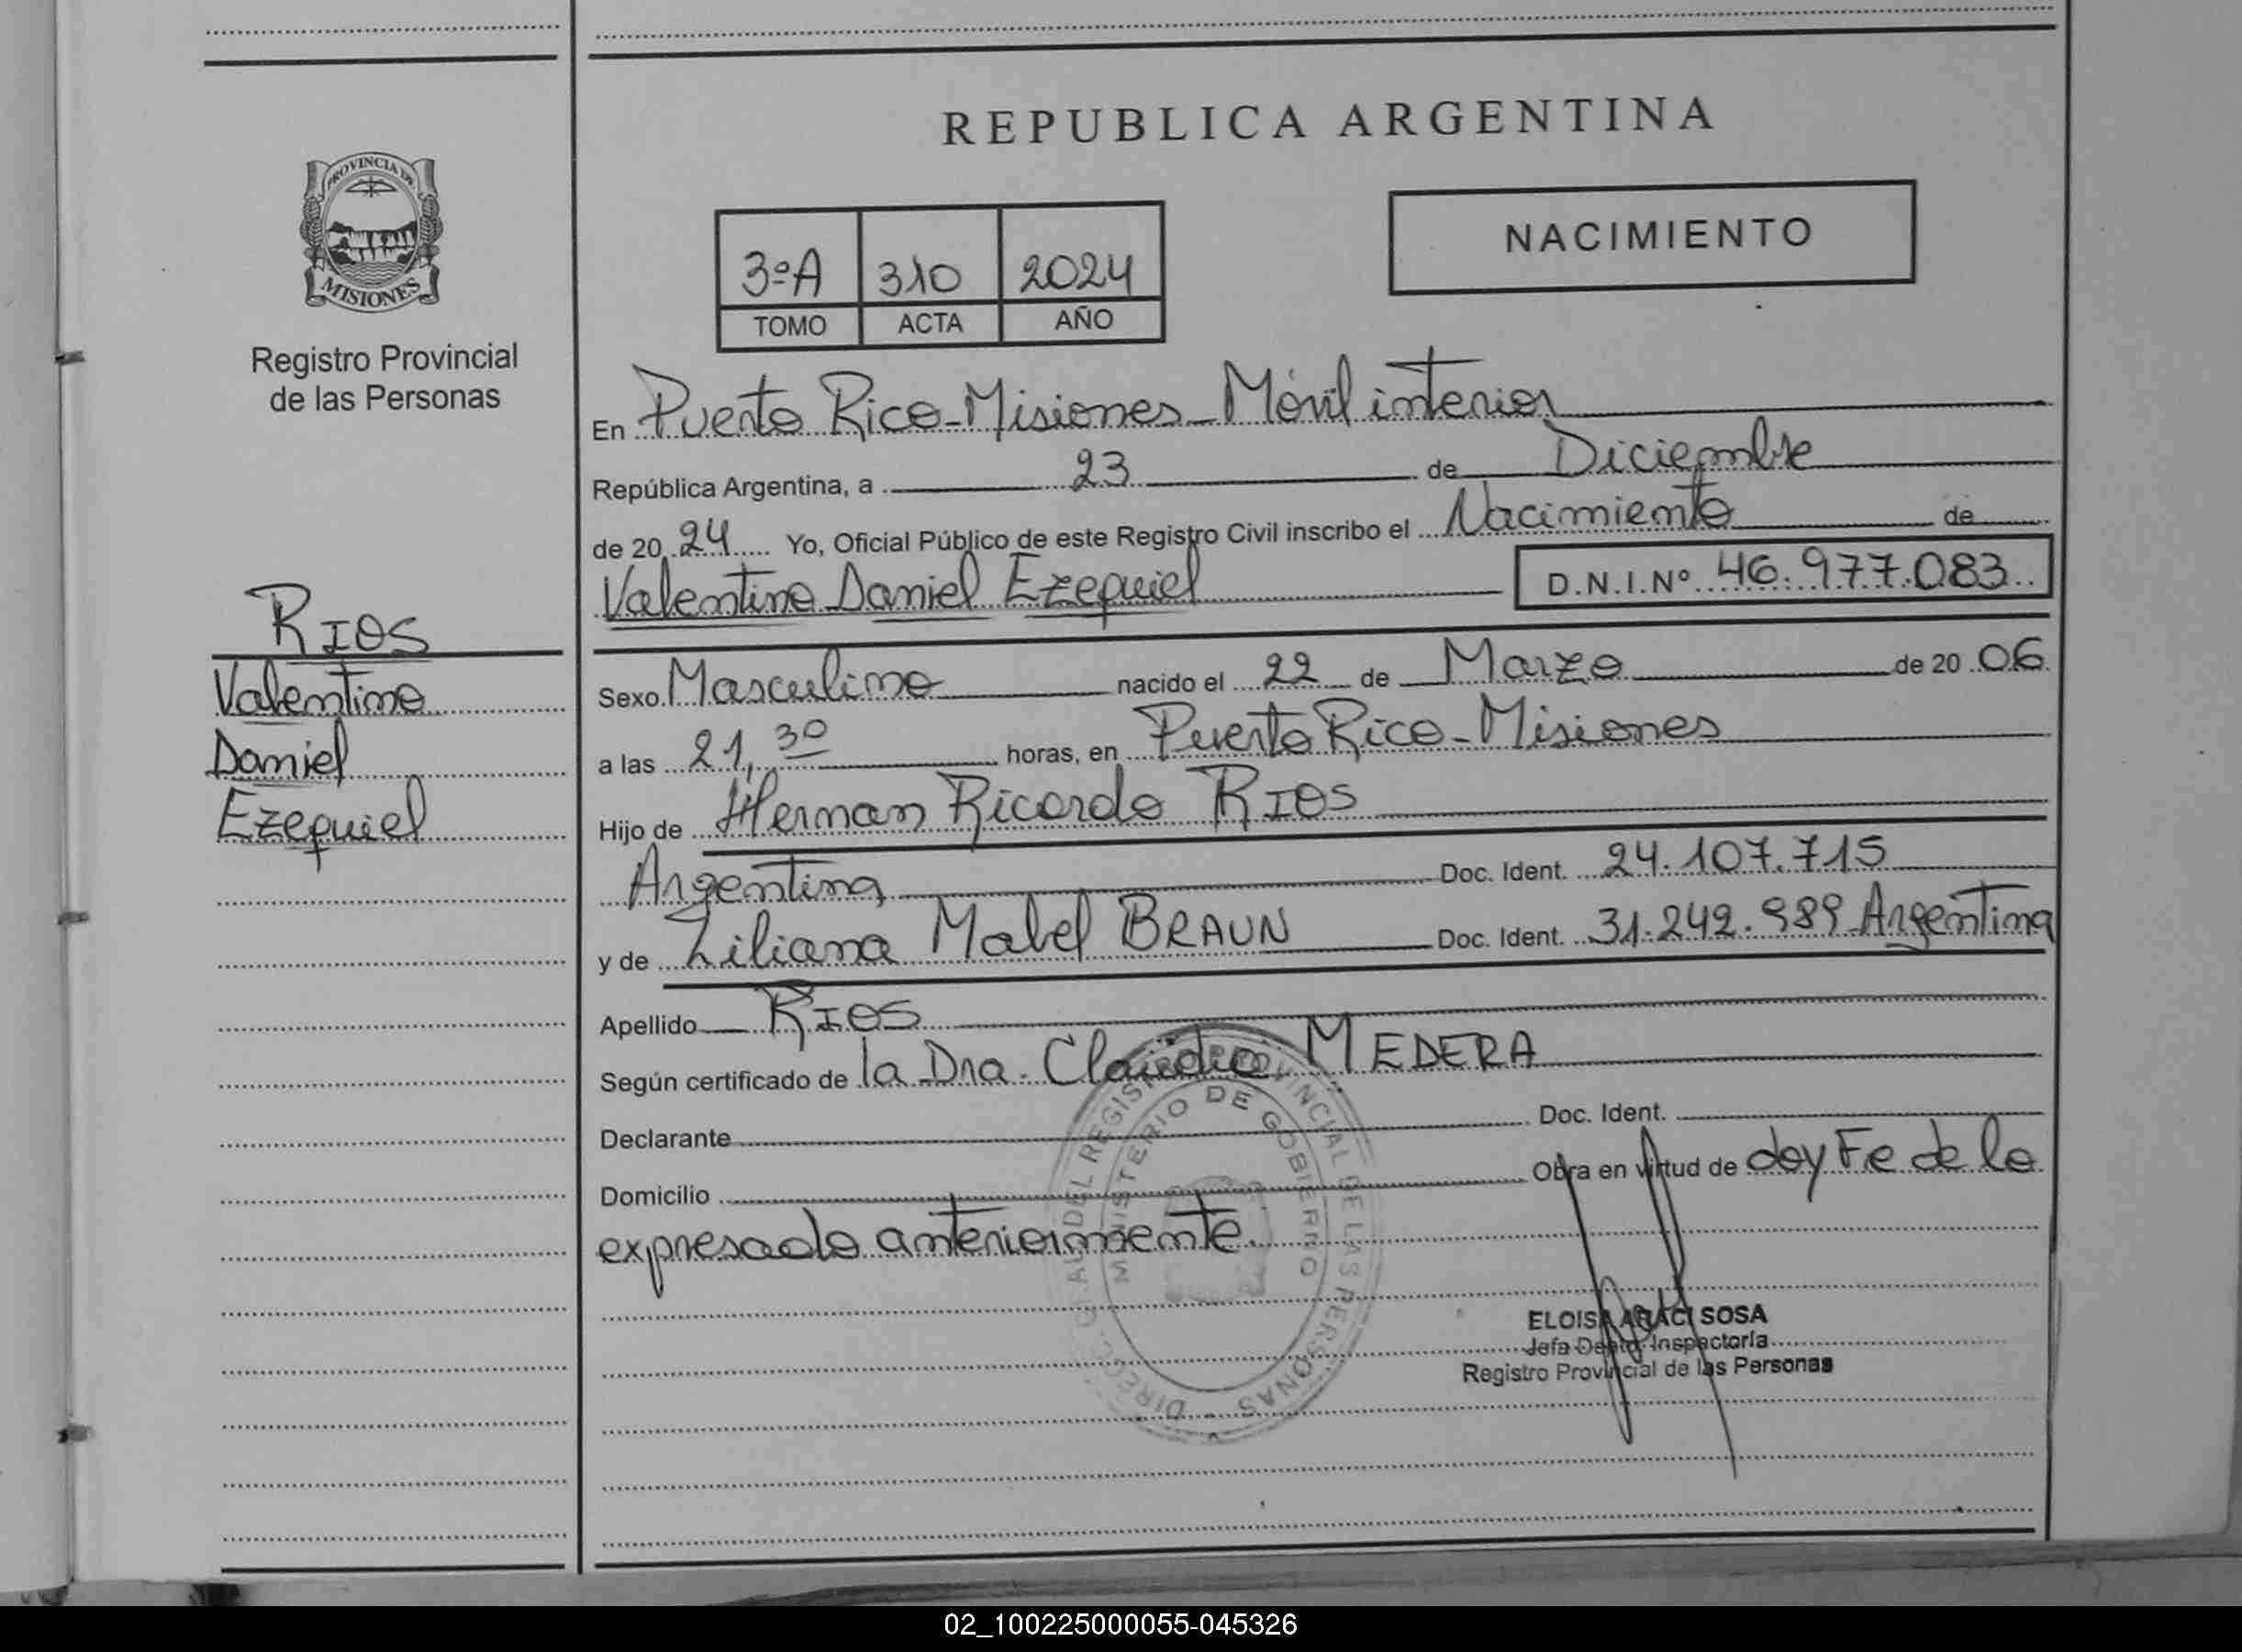 REPUBLICA ARGENTINA
PROVINCIA DE
MISIONES
Registro Provincial
de las Personas
3ºA 310 2024
TOMO ACTA AÑO
NACIMIENTO
En Puerto Rico-Misiones-Móvil interior
República Argentina, a 23 de Diciembre
de 20 24 Yo, Oficial Público de este Registro Civil inscribo el Nacimiento de
Valentino Daniel Ezequiel D.N.I.Nº 46.977.083
RIOS
Valentino
Daniel
Ezequiel
Sexo Masculino nacido el 22 de Marzo de 20 06
a las 21,30 horas, en Puerto Rico-Misiones
Hijo de Hernan Ricardo RIOS
Argentina Doc. Ident. 24.107.715
y de Liliana Mabel BRAUN Doc. Ident. 31.242.989 Argentina
Apellido RIOS
Según certificado de la Dra. Claudia MEDERA
Declarante Doc. Ident.
Domicilio Obra en virtud de doy Fe de lo
expresado anteriormente.
DIRECC. GRAL DEL REGISTRO PROVINCIAL DE LAS PERSONAS
MINISTERIO DE GOBIERNO
ELOISA ARACI SOSA
Jefa Depto. Inspectoría
Registro Provincial de las Personas
02_100225000055-045326